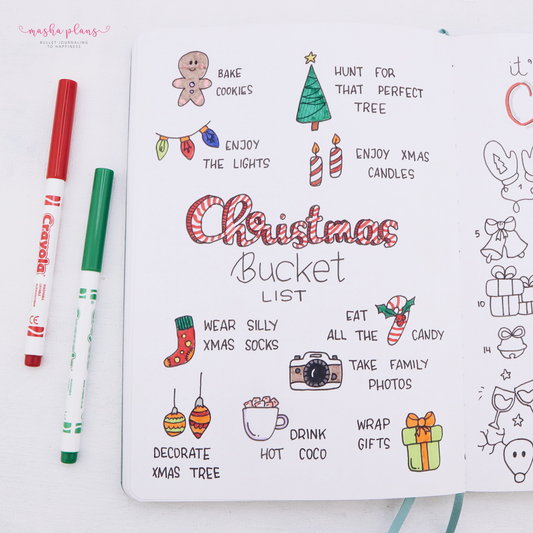 masha plans
BULLET JOURNALING
TO HAPPINESS
BAKE
COOKIES
HUNT FOR
THAT PERFECT
TREE
ENJOY
THE LIGHTS
ENJOY XMAS
CANDLES
Christmas
Bucket
LIST
WEAR SILLY
XMAS SOCKS
EAT
ALL THE CANDY
TAKE FAMILY
PHOTOS
DECORATE
XMAS TREE
DRINK
HOT COCO
WRAP
GIFTS
Crayola
it's
5
10
14